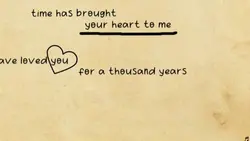 time has brought
your heart to me
ave loved you
for a thousand years